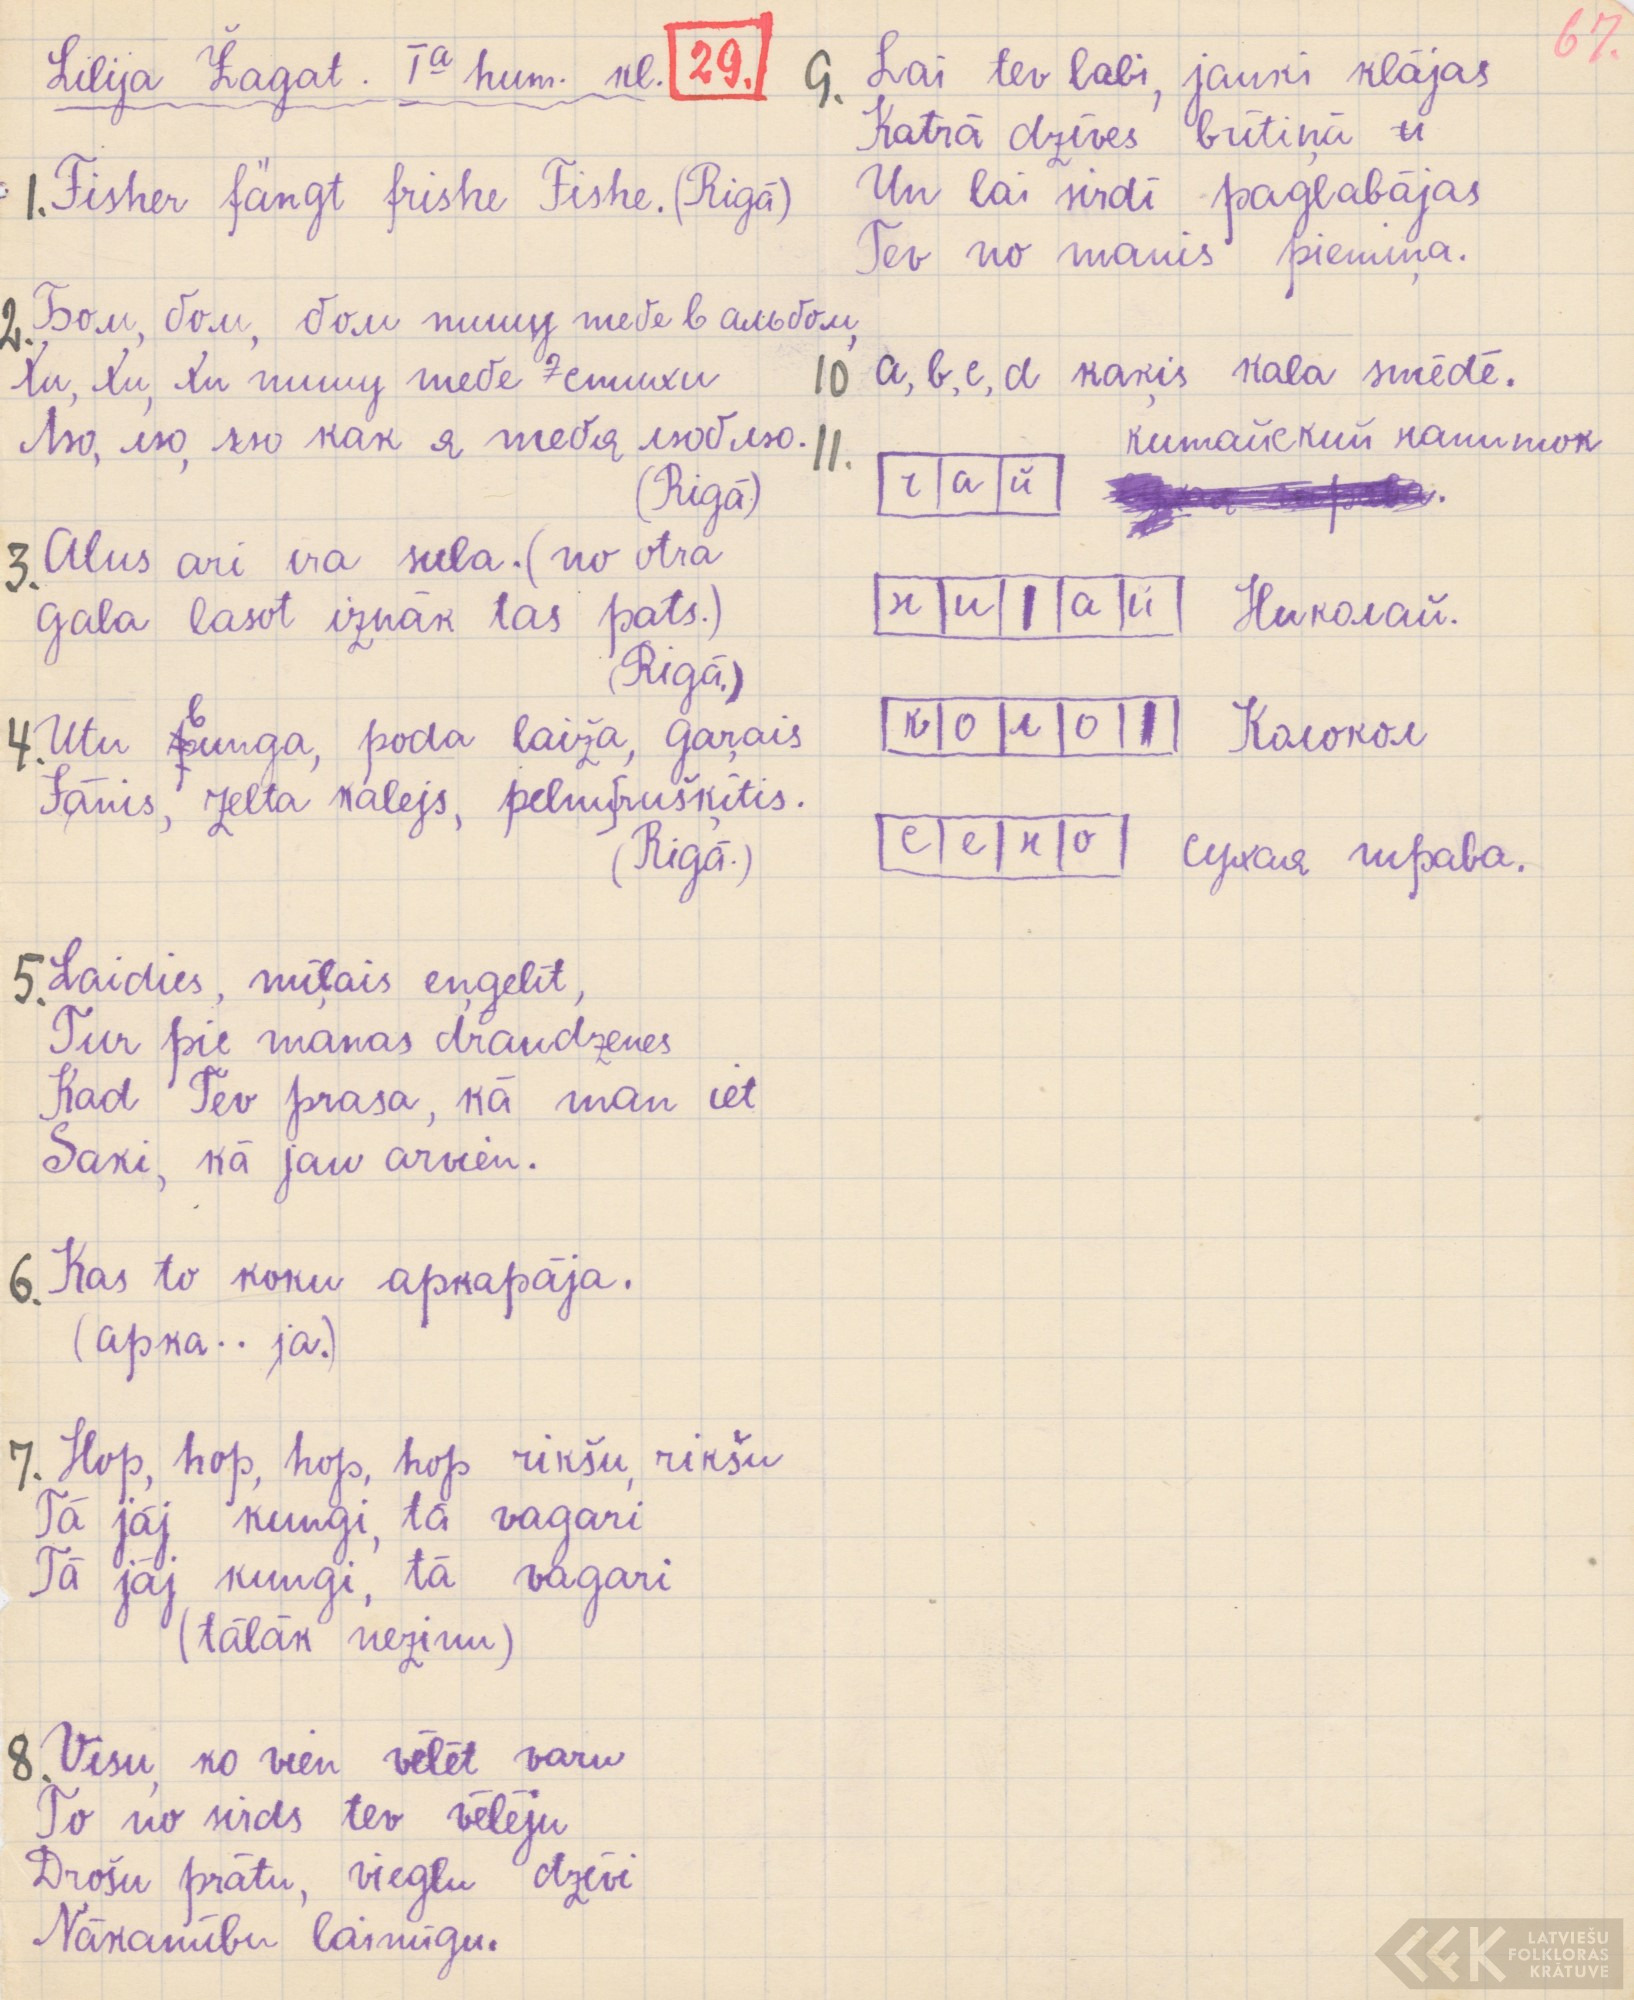 67.
Lilija Žagat. Iª hum. kl. 29.
1. Fisher fängt frishe Fishe. (Rigā)
2. Бом, бом, бом пишу тебе в альбом,
Хи, Хи, Хи пишу тебе стихи
Лю, лю, лю как я тебя люблю.
(Rigā)
3. Alus ari ira sula. (no otra
gala lasot iznāk tas pats.)
(Rigā.)
4. Utu bunga, poda laiža, gaŗais
Jānis, zelta kalejs, pelnrušķītis.
(Rigā.)
5. Laidies, mīļais eņgelīt,
Tur pie manas draudzenes
Kad Tev prasa, kā man iet
Saki, kā jau arvien.
6. Kas to koku apkapāja.
(apka.. ja.)
7. Hop, hop, hop, hop rikšu, rikšu
Tā jāj kungi, tā vagari
Tā jāj kungi, tā vagari
(tālāk nezinu)
8. Visu, ko vien vēlēt varu
To no sirds tev vēlēju
Drošu prātu, vieglu dzīvi
Nākamību laimīgu.
9. Lai tev labi, jauki klājas
Katrā dzīves brītiņā
Un lai sirdī paglabājas
Tev no manis piemiņa.
10 a, b, c, d kaķis kala smēdē.
11. чай китайский напиток
ни | ай Николай.
коло | Колокол
сено сухая трава.
LATVIEŠU
FOLKLORAS
KRĀTUVE